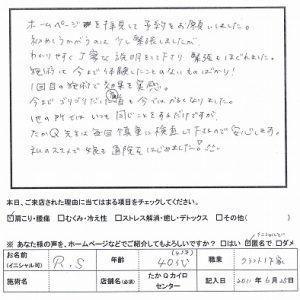 ホームページを拝見して予約をお願いしました。
初めてうかがうのは少し緊張しましたが、
わかりやすく丁寧な説明をして下さり 緊張もほぐれました。
施術は今まで体験したことのないものばかり!
1回目の施術で効果を実感。
今までゴリゴリだった肩も今ではかるくなりました。
他の所では いつも同じことをするだけですが、
たかQ先生は毎回慎重に検査して下さるので安心です。
私のススメで娘も通院をはじめました!
本日、ご来院された理由に当てはまる項目をチェックしてください。
☑肩こり・腰痛 □むくみ・冷え性 □ストレス解消・癒し・デトックス □その他( )
※ あなた様の声を、ホームページなどでご紹介してもよろしいですか? □はい ☑匿名で □ダメ
お名前(イニシャル可) R.S 年齢 40代 職業 クラフト作家
店舗名(必須) たかQカイロセンター 記入日 2011年6月25日